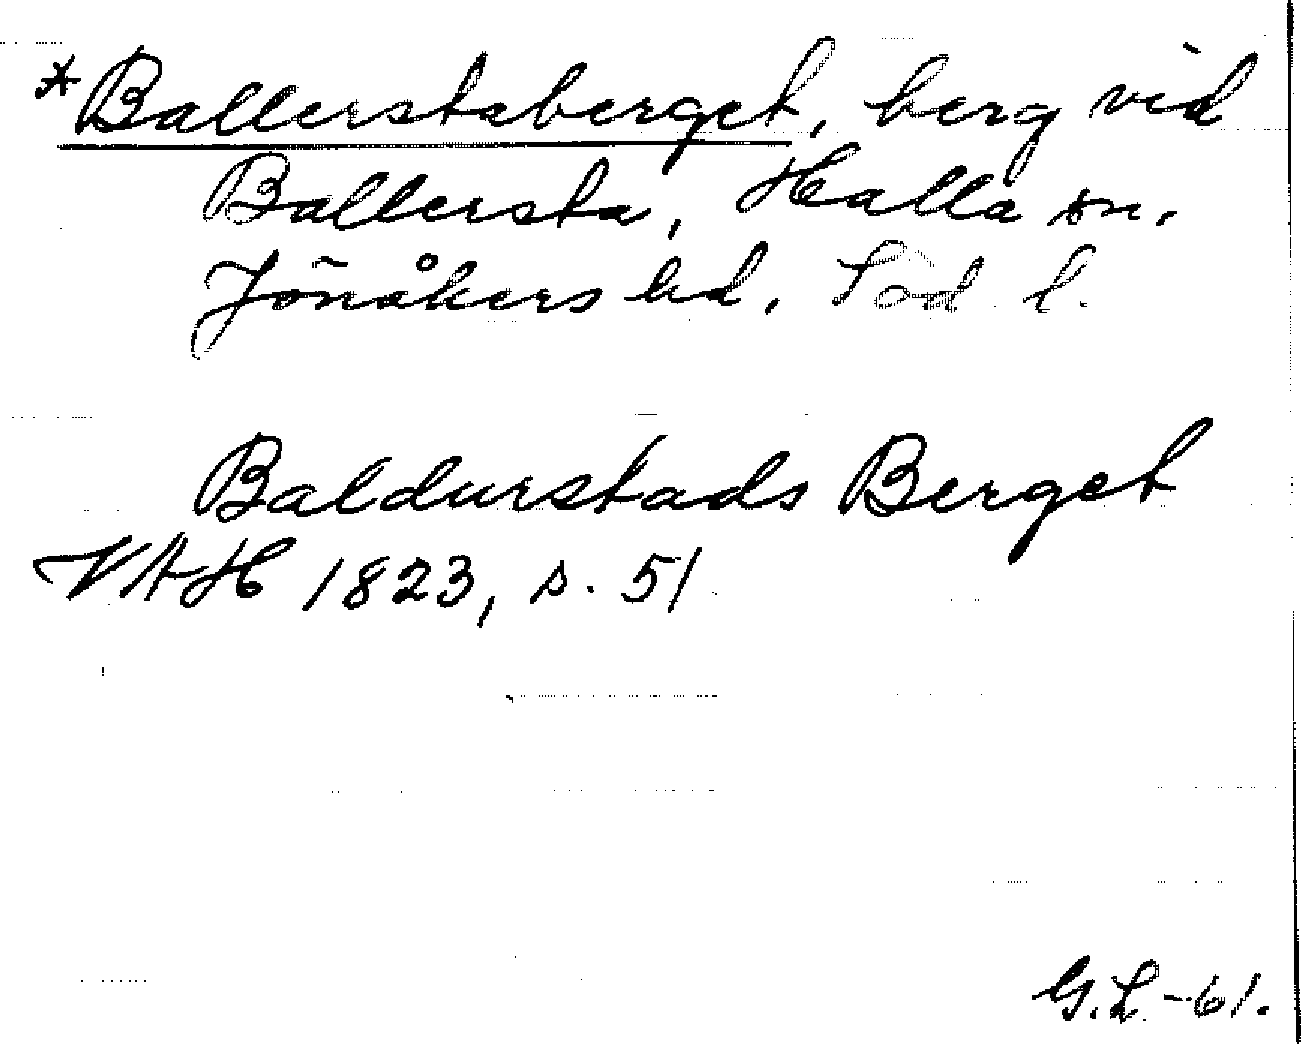 *Ballerstaberget, berg vid
Ballersta, Halla sn.
Jönåkers hd. Söd. l.
Baldurstads Berget
VAH 1823, s. 51
G.L.-61.